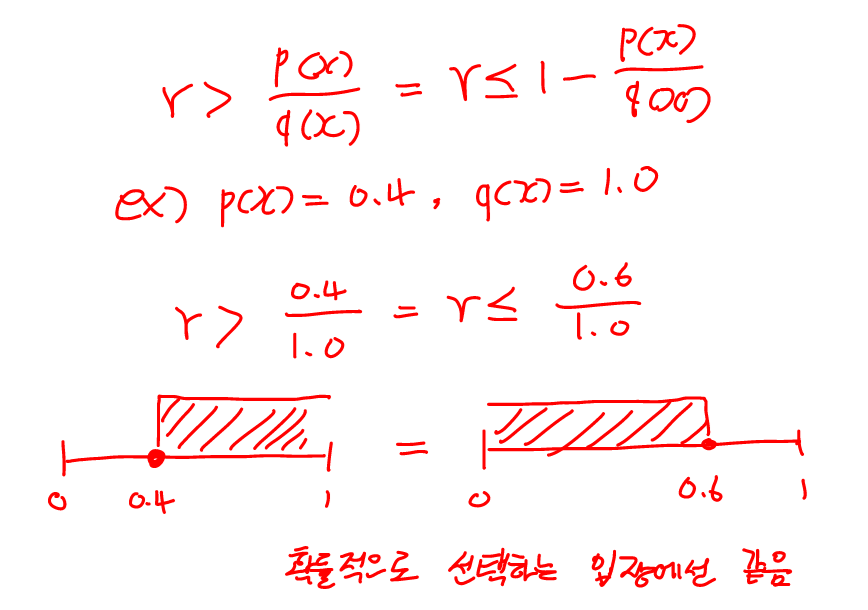 r > p(x)/q(x) = r ≤ 1 - p(x)/q(x)
ex) p(x) = 0.4, q(x) = 1.0
r > 0.4/1.0 = r ≤ 0.6/1.0
=
0 0.4 1 0 0.6 1
확률적으로 선택하는 입장에선 같음